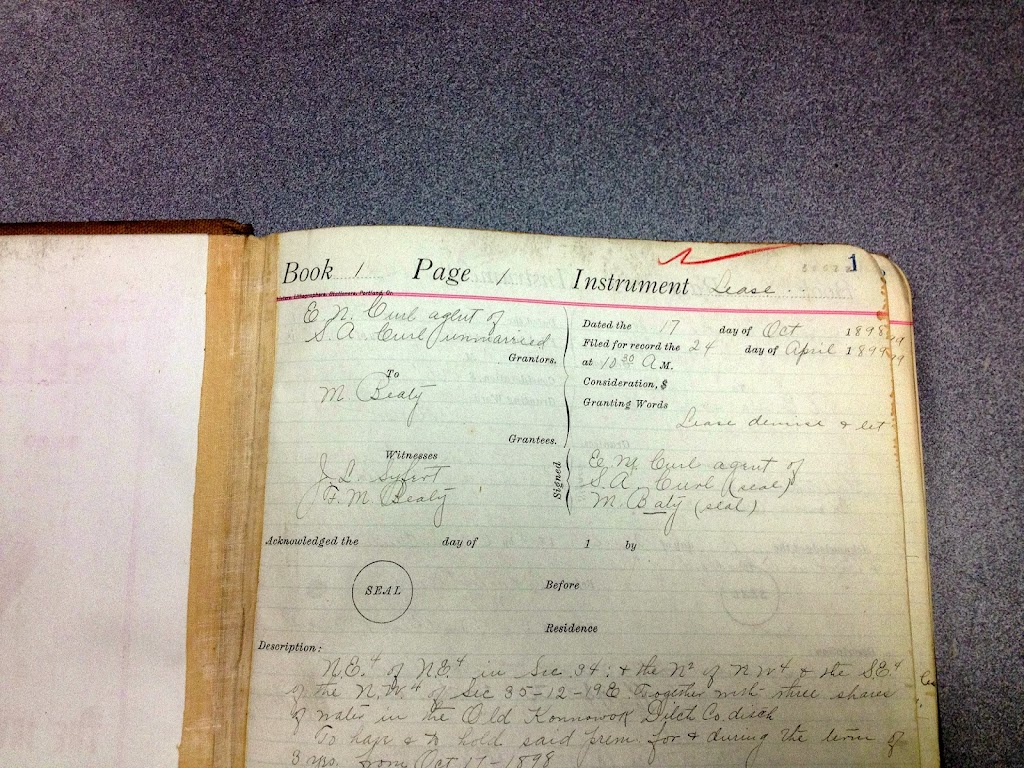 1
Book 1 Page 1 Instrument Lease.
Lithographers, Stationers, Portland, Or.
E. N. Curl agent of
S. A. Curl unmarried
Grantors.
To
M. Beaty
Grantees.
Witnesses
J. L. Syfert
F. M. Beaty
Dated the 17 day of Oct 1898
Filed for record the 24 day of April 1899
at 10 30 A M.
Consideration, $
Granting Words
Lease demise & let
Signed
E. N. Curl agent of
S. A. Curl (seal)
M. Baty (seal)
Acknowledged the day of 1 by
SEAL
Before
Residence
Description:
N.E.4 of N.E.4 in Sec 34: & the N2 of N W4 & the S.E.4
of the N.W.4 of Sec 35-12-19E. Together with three shares
of water in the Old Konnowok Ditch Co. ditch
To have & to hold said prem. for & during the term of
3 yrs. from Oct 17-1898